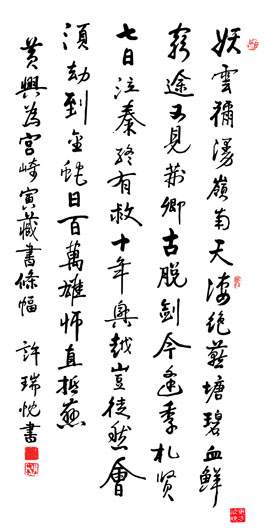 妖雲彌漫嶺南天凄絕燕塘碧血鮮
窮途又見荊卿古脫劍今逢季札賢
七日泣秦終有救十年興越豈徒然會
須劫到金蛇日百萬雄師直抵燕
黄興為宮崎寅藏書條幅 許瑞忱書